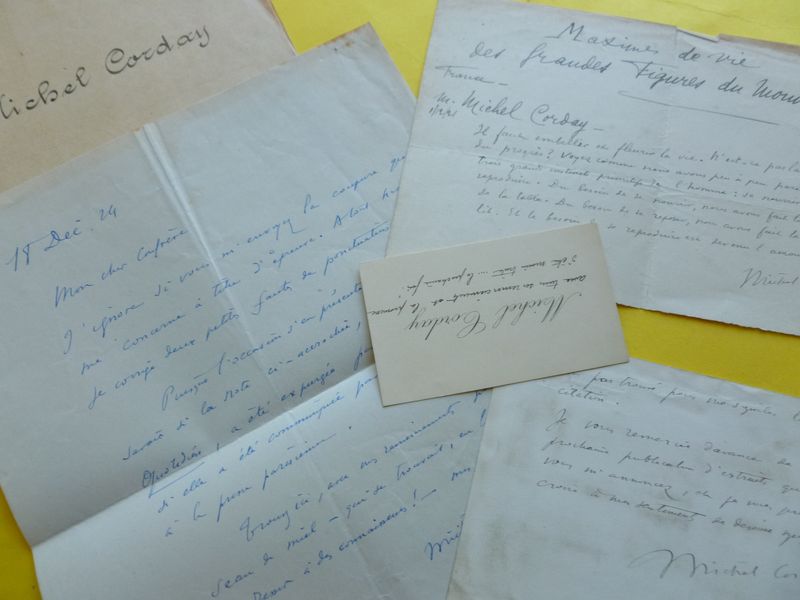 Michel Corday
18 Déc. 24
Mon cher Confrère
J'ignore si vous m'envoyez la coupure qui
me concerne à titre d'épreuve. A tout
Je corrige deux petites fautes de ponctuation
Puisque l'occasion s'en présente
savoir si la note ci-accrochée,
Quotidien, a été expurgée
si elle a été communiquée
à la presse parisienne.
avec mes remerciements
de miel — qui se trouvait,
à des connaisseurs! —
Maximes de vie
des Grandes Figures du Mon
France —
M. Michel Corday —
Il faut embellir et fleurir la vie. N'est-ce pas la
du progrès? Voyez comme nous avons peu à peu paré
trois grands instincts primitifs de l'homme: se nourrir
reproduire. Du besoin de se nourrir, nous avons fait
de la table. Du besoin de se reposer, nous avons fait le
lit. Et le besoin de se reproduire est devenu l'amour
Michel
Michel Corday
avec tous ses remerciements et la promesse
pas trouvé
citation.
Je vous remercie d'avance de
prochaine publication d'extraits, que
vous m'annoncez, et je vous prie
croire à mes sentiments
Michel Cor